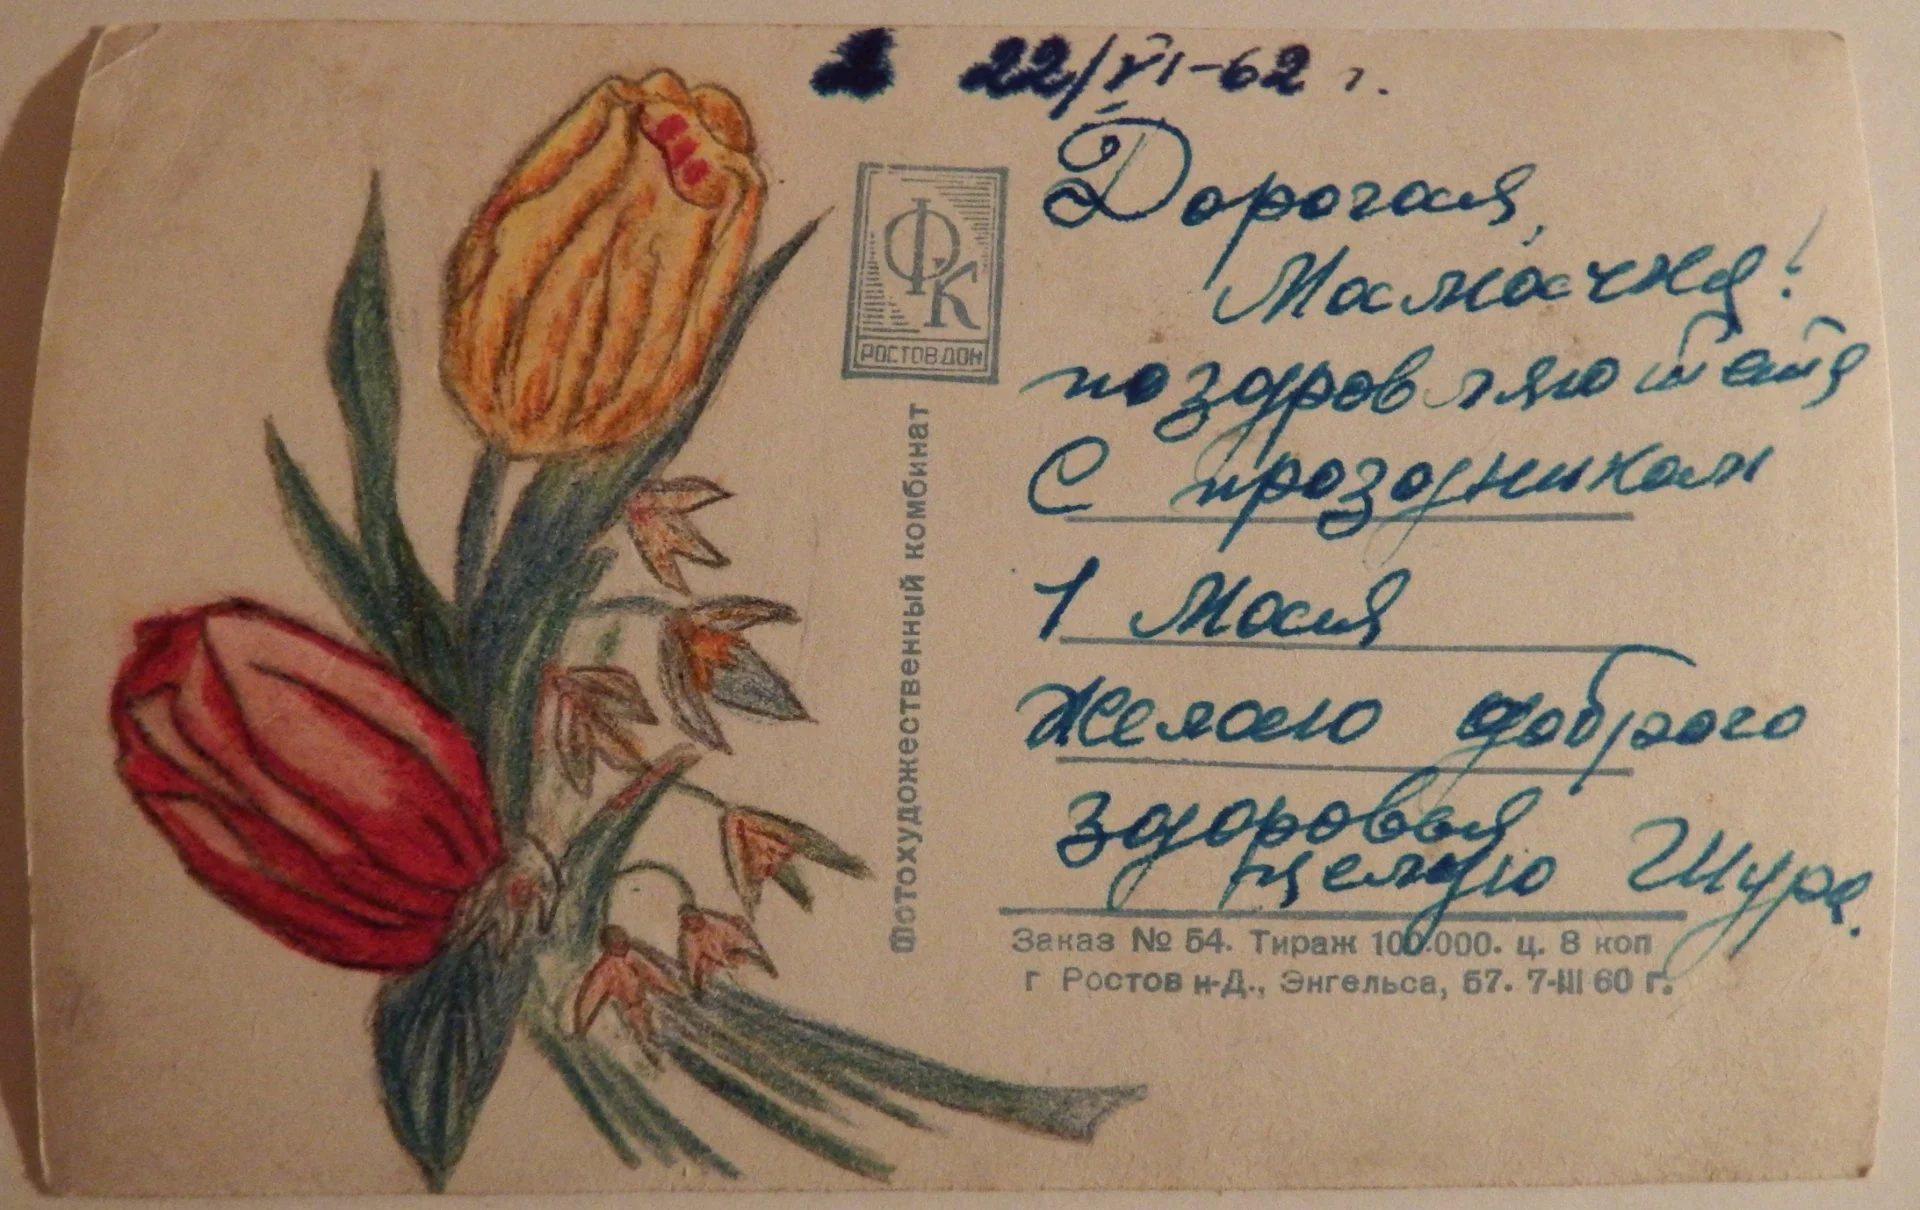 22/VI-62 г.
Дорогая,
Мамочка!
поздровляю тебя
С праздником
1 Мая
Желаю доброго
здоровья
целую Шура.
ФК
РОСТОВДОН
Фотохудожественный комбинат
Заказ № 54. Тираж 100.000. ц. 8 коп
г Ростов н-Д., Энгельса, 57. 7-III 60 г.